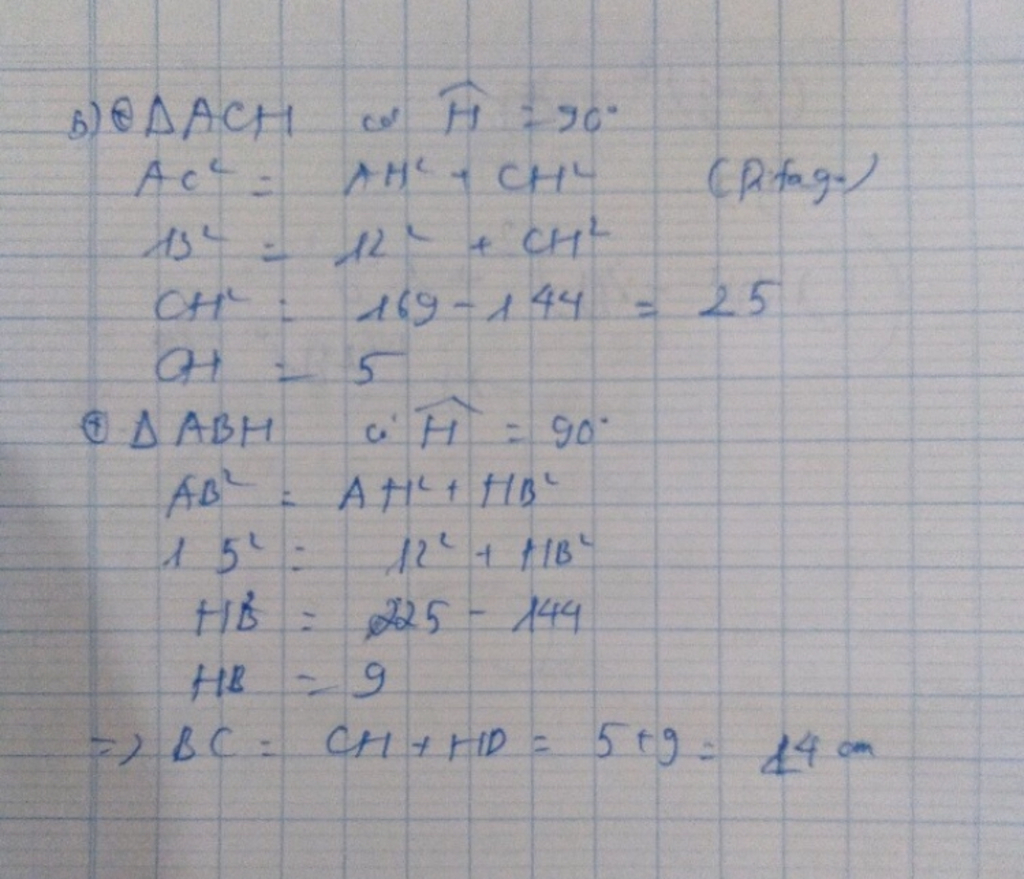 b) ⊕ ΔACH có Ĥ = 90°
AC² = AH² + CH² (Pitago)
13² = 12² + CH²
CH² = 169 - 144 = 25
CH = 5
⊕ ΔABH có Ĥ = 90°
AB² = AH² + HB²
15² = 12² + HB²
HB² = 225 - 144
HB = 9
=> BC = CH + HB = 5 + 9 = 14 cm